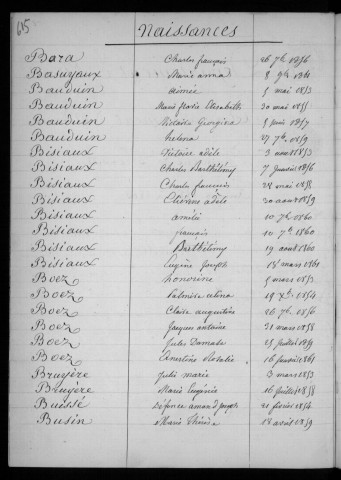 615
Naissances
Bara Charles françois 26 7bre 1856
Basuyaux Marie anna 8 9bre 18
Bauduin aimée 5 mai 1853
Bauduin Marie florie Elisabeth 30 mai 1855
Bauduin Adelaïde Georgina 1857
Bauduin helena 27 7bre 1859
Bisiaux Victoire adèle 3 1853
Bisiaux Charles Barthélémy 7 janvier 1856
Bisiaux Charles francois 24 mai 1858
Bisiaux adèle 30 août 1859
Bisiaux amélie 10 7bre 1860
Bisiaux françois 10 7bre 1860
Bisiaux Barthélémy 19 août 1860
Bisiaux Eugène joseph 18 mars 1861
Boez honorine 5 mars 1853
Boez Palmire 19 Xbre 1854
Boez Claire augustine 26 7bre 1856
Boez Jacques antoine 31 mars 1858
Boez Jules 25 juillet 1859
Boez Ernestine Rosalie 16 janvier 1861
Bruyère Julie marie 3 mars 1853
Bruyère Marie Eugénie 16 juillet 1858
Buissé amand joseph 21 février 1854
Busin Marie Thérèse 18 avril 1859